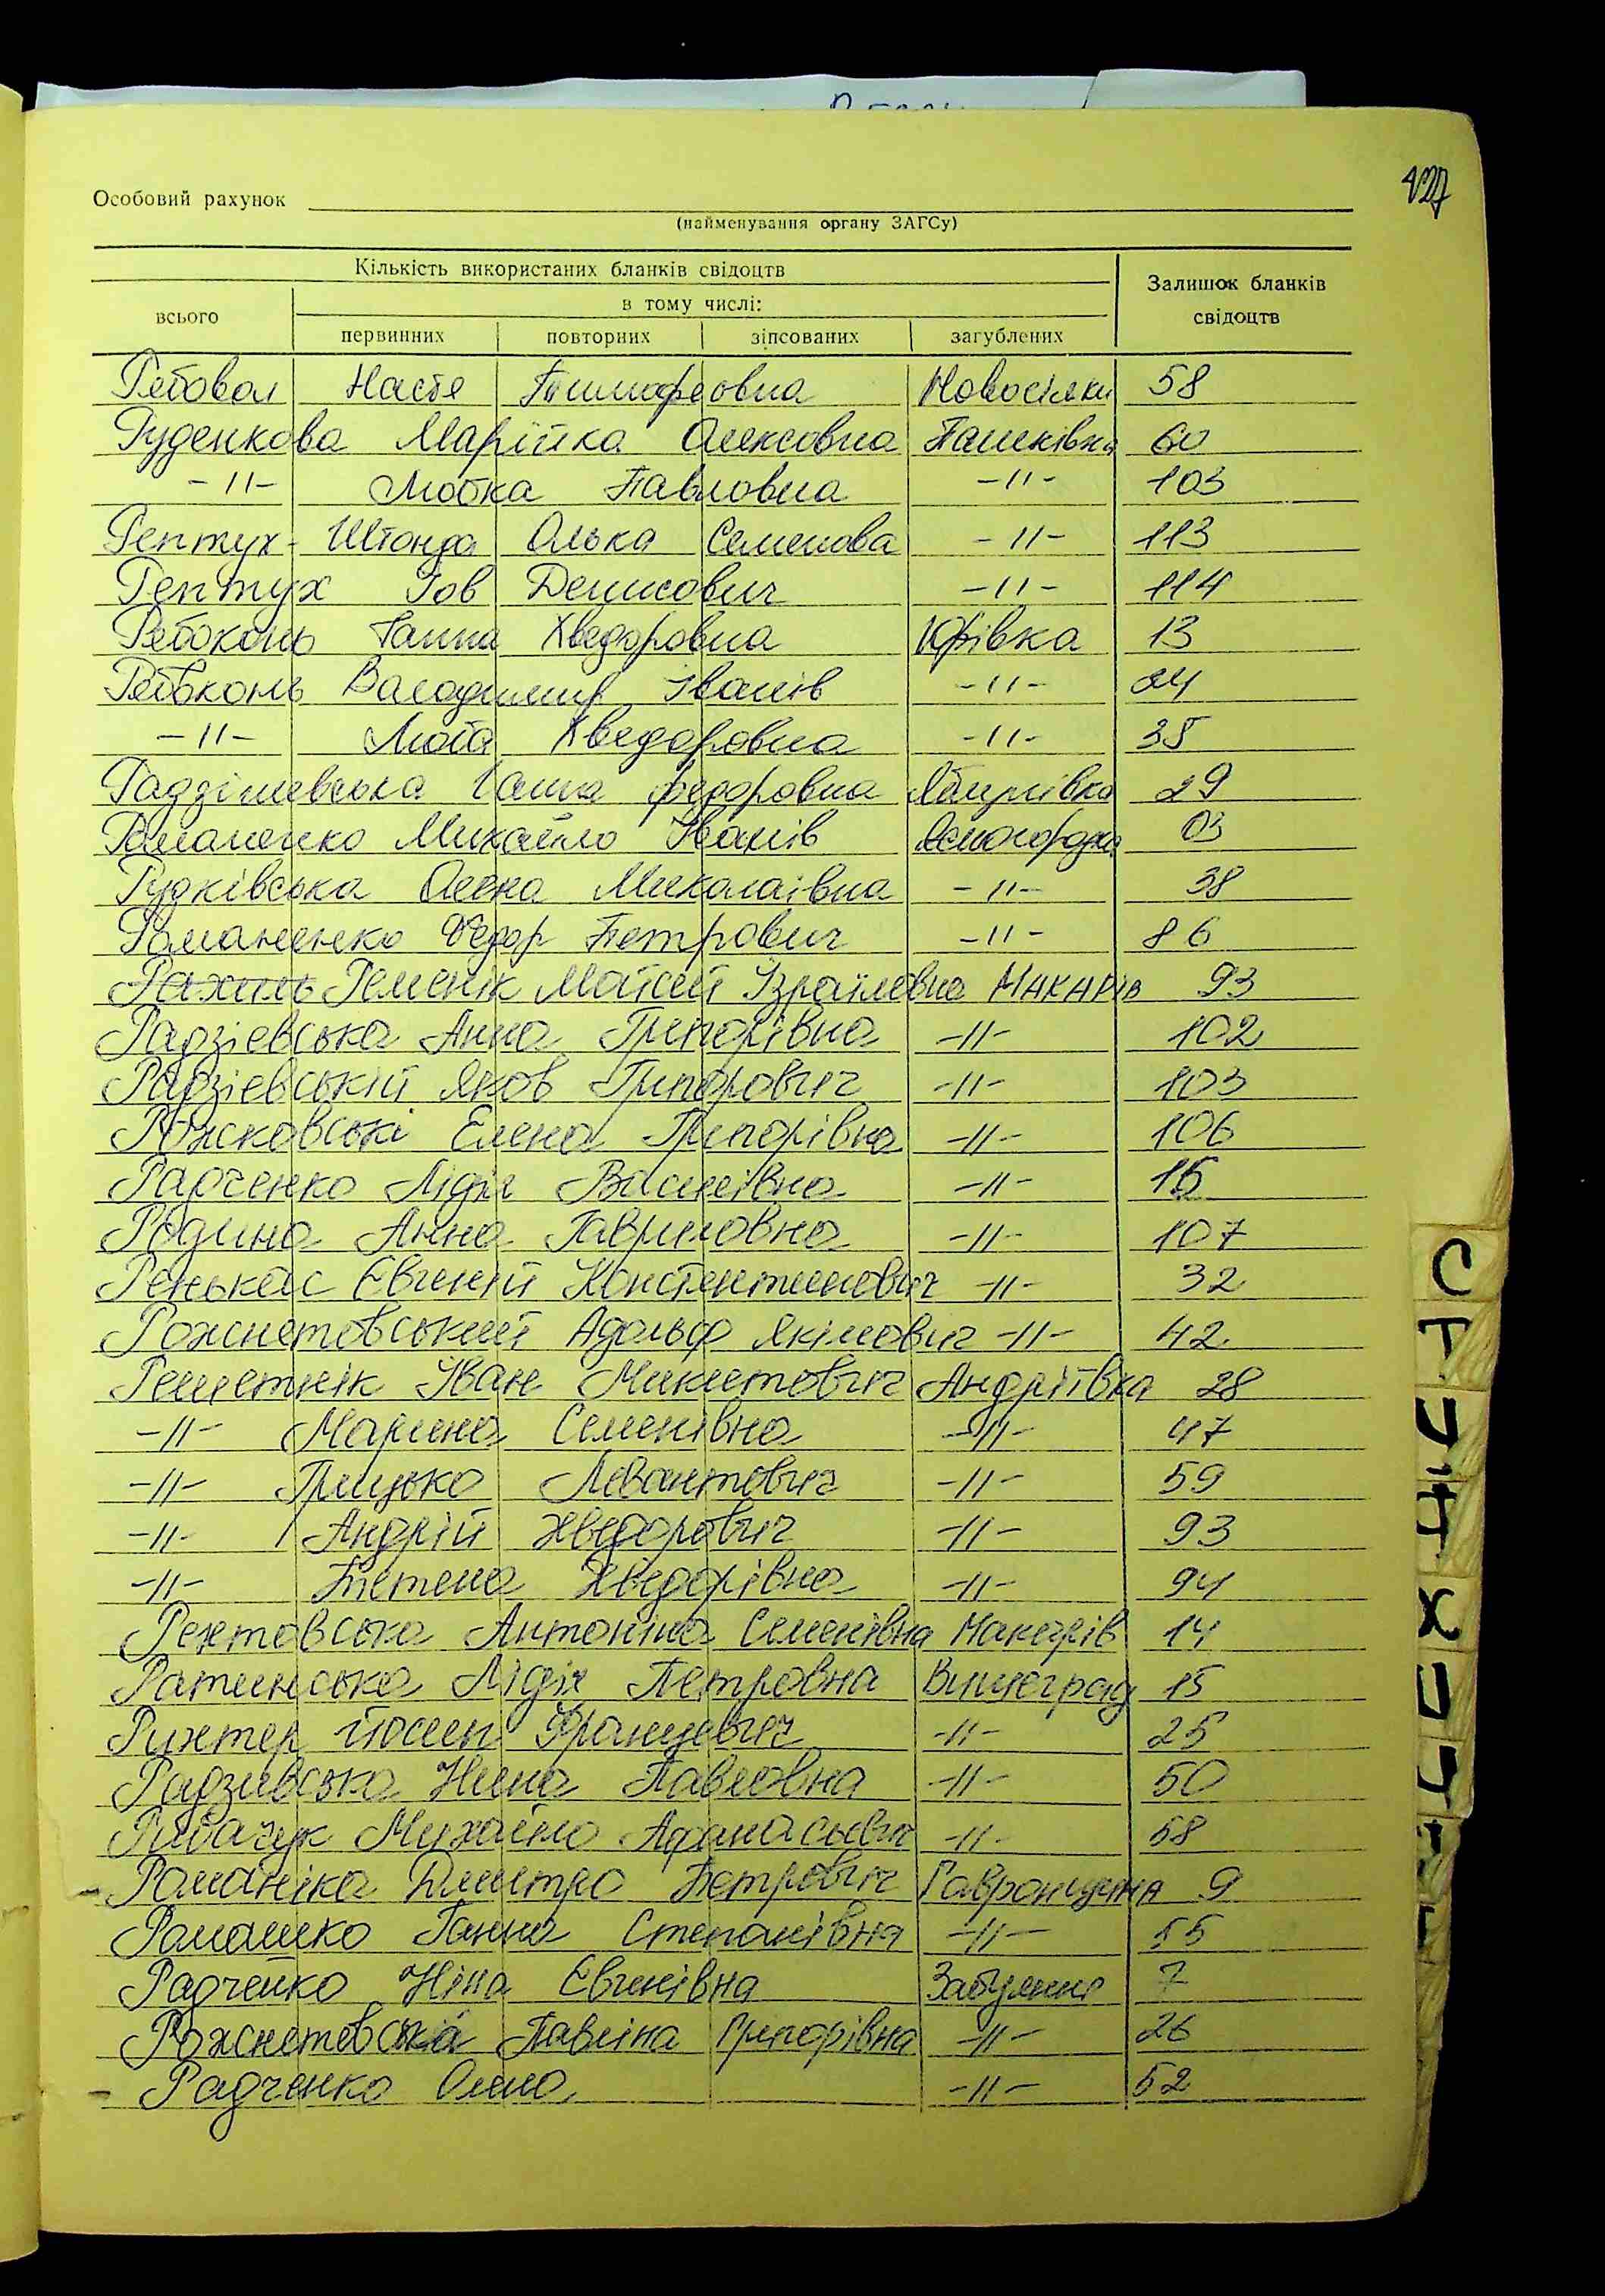 127
Особовий рахунок
(найменування органу ЗАГСу)
Кількість використаних бланків свідоцтв
Залишок бланків свідоцтв
всього
в тому числі:
первинних повторних зіпсованих загублених
Настя Тимофеовна Новосілки 58
Руденкова Марійка Олексовна Пашківка 60
-11- Любка Павловна -11- 103
Рептух-Штонда Олька Семенова -11- 113
Рептух Іов Денисович -11- 114
Рябоконь Ганна Хведоровна Юрівка 13
Рябоконь Володимир Іванів -11- 24
-11- Люба Хведоровна -11- 38
Ганна Федоровна 29
Романенко Михайло Іванів Ясногородка 03
Рудківська Олена Миколаівна -11- 38
Романенко Федор Петрович -11- 86
Рахиль Ременік Мойсей Ізраїлевна Макарів 93
Радзіевська Анна Григорівна -11- 102
Радзіевський Яков Григорович -11- 103
Рожковські Елена Григорівна -11- 106
Радченко Лідія Василівна -11- 15
Родина Анна Гавриловна -11- 107
Ренькас Євгеній Константинович -11- 32
Рожнятовський Адольф Якімович -11- 42
Решетнік Іван Микитович Андріївка 28
-11- Марина Семенівна -11- 47
-11- Грицько Левантович -11- 59
-11- Андрій Хведорович -11- 93
-11- Тетена Хведорівна -11- 94
Рехтовська Антоніна Семенівна Макарів 14
Ратинська Лідія Петровна Вишеград 15
Рихтер Йосип Францевич -11- 25
Радзивська Нина Павловна -11- 50
Рибачук Михайло Афанасьевич -11- 58
- Романіка Дмитро Петрович Гавронщина 9
Ромашко Ганна Степанівна -11- 55
Радченко Ніна Євгенівна Забуяння 7
Рожнятовська Павліна Григорівна -11- 26
- Радченко Олена -11- 52
С
Т
У
Ф
Х
Ц
Ч